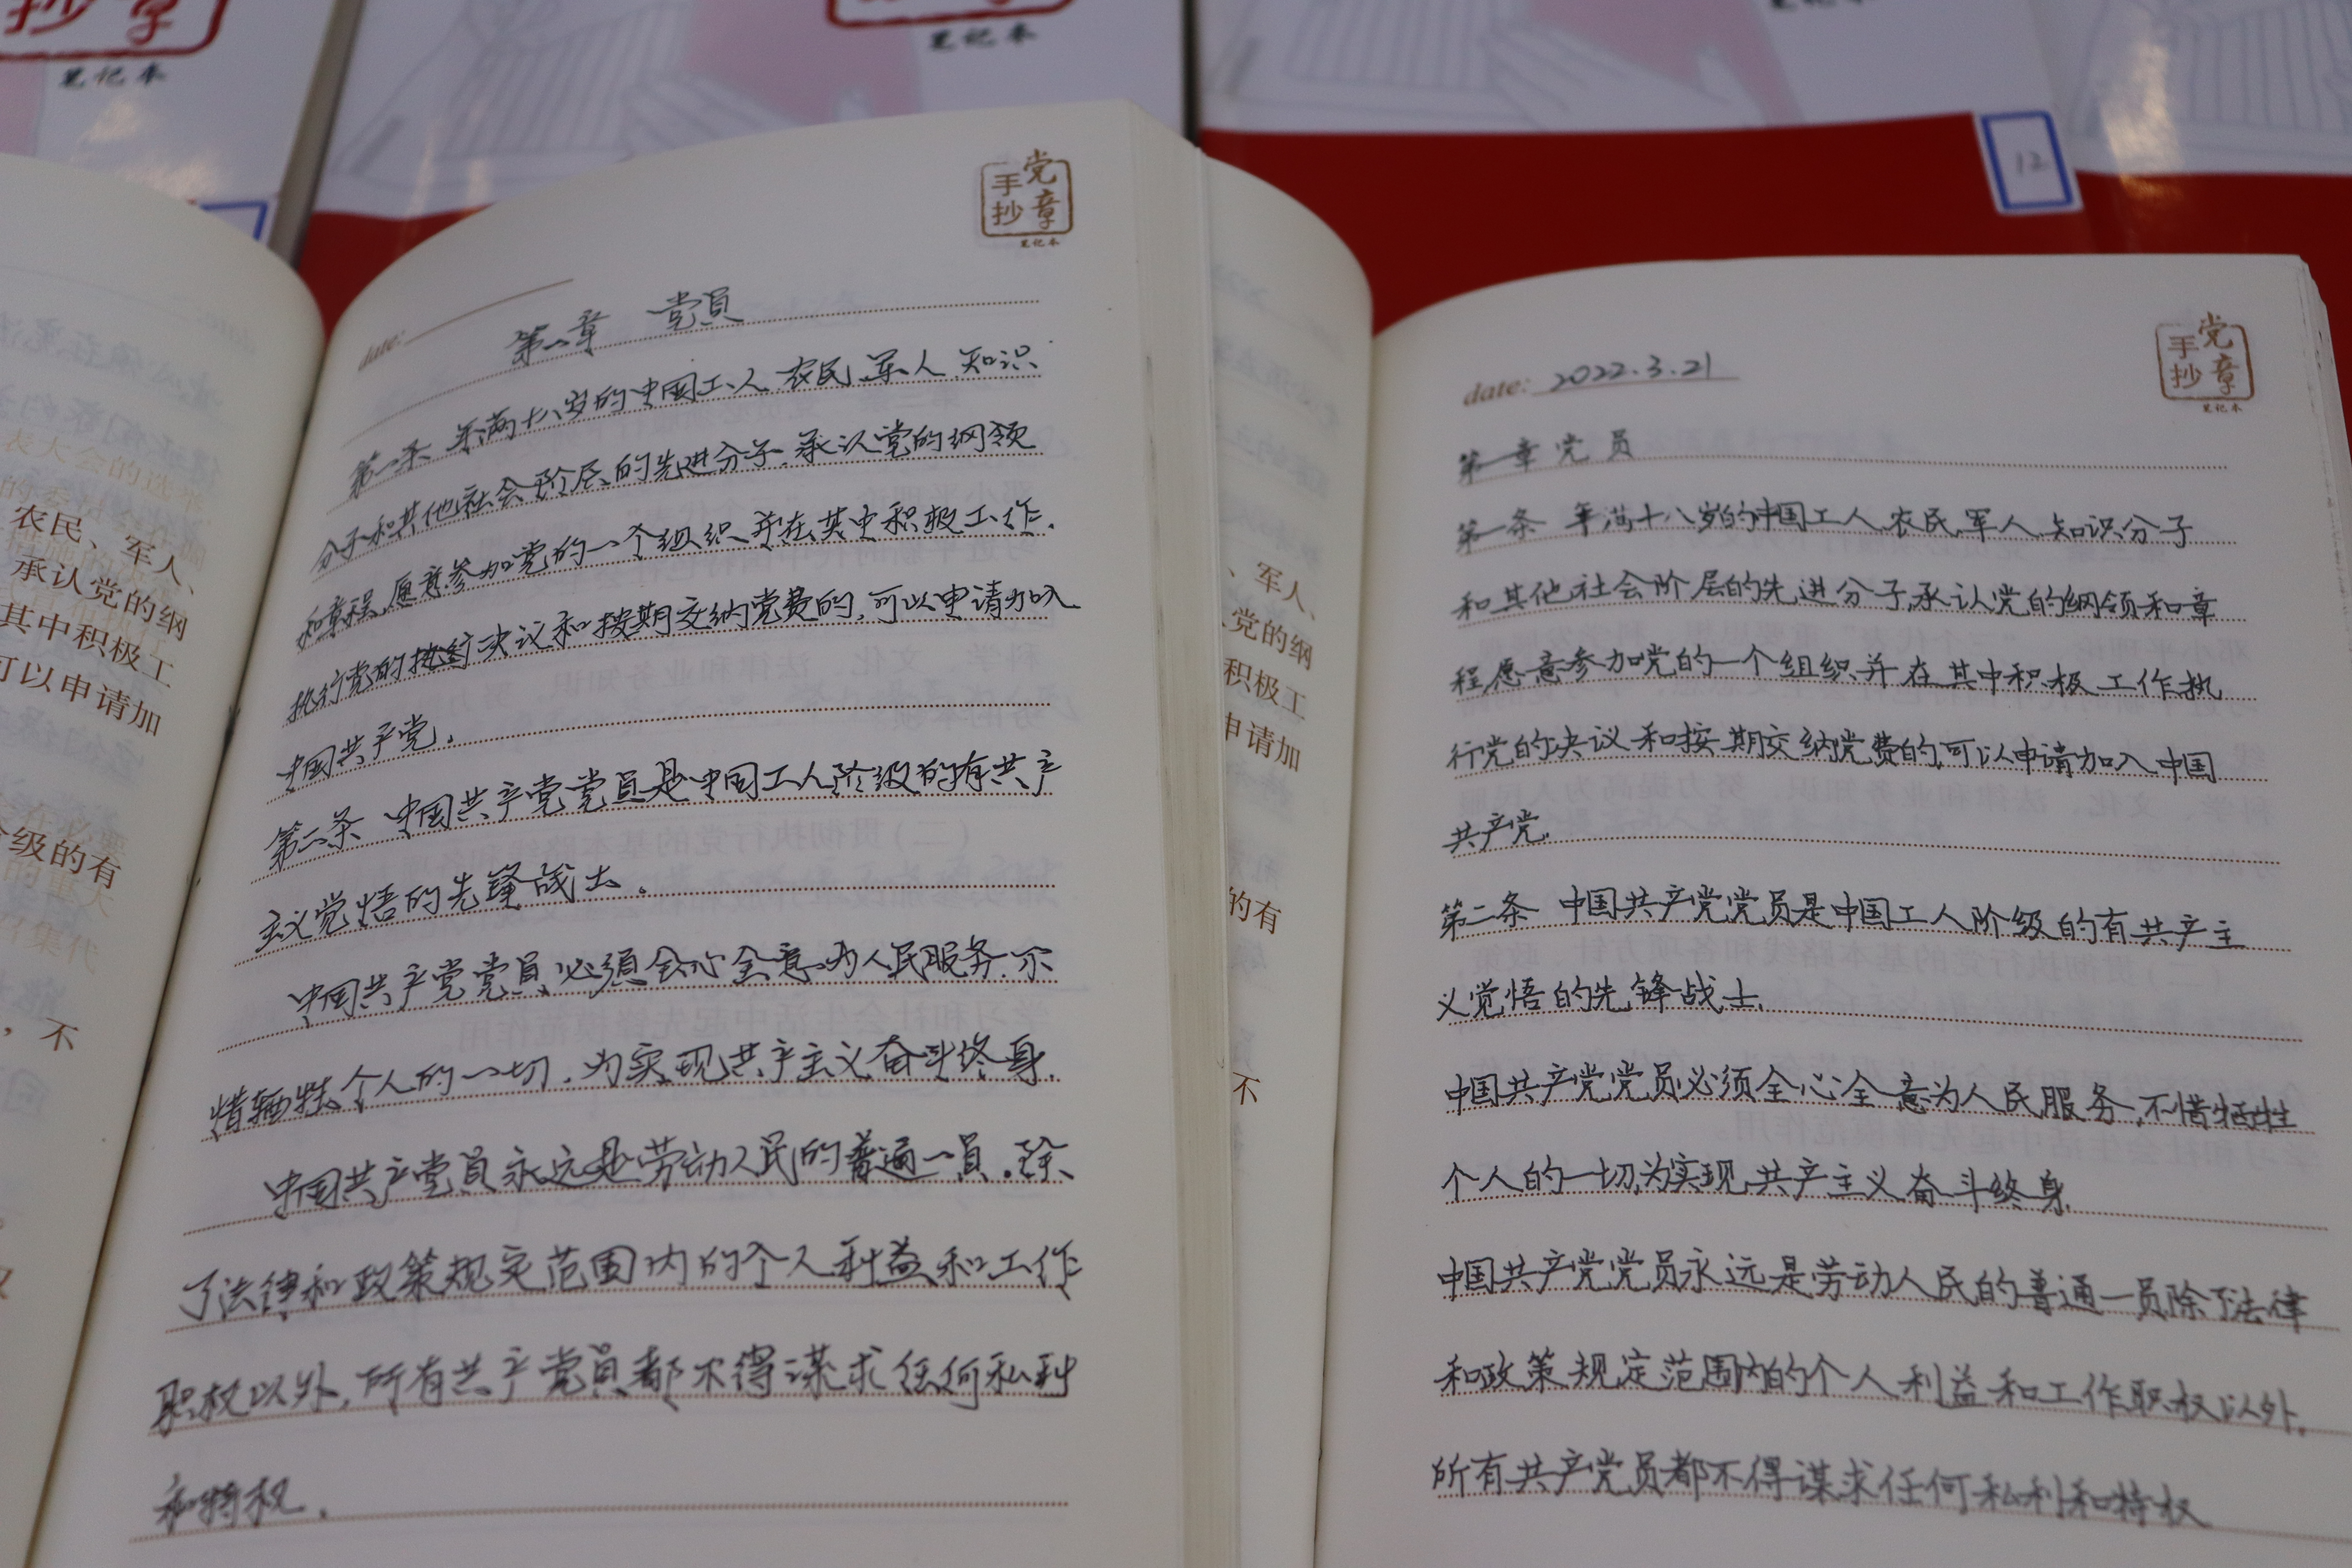 抄章
笔记本
笔记本
12
农民、军人、
承认党的纲
其中积极工
可以申请加
级的有
，不
手抄党章
笔记本
date:
第一章 党员
第一条 年满十八岁的中国工人、农民、军人、知识
分子和其他社会阶层的先进分子，承认党的纲领
和章程，愿意参加党的一个组织并在其中积极工作，
执行党的决议和按期交纳党费的，可以申请加入
中国共产党。
第二条 中国共产党党员是中国工人阶级的有共产
主义觉悟的先锋战士。
中国共产党党员必须全心全意为人民服务，不
惜牺牲个人的一切，为实现共产主义奋斗终身。
中国共产党员永远是劳动人民的普通一员。除
了法律和政策规定范围内的个人利益和工作
职权以外，所有共产党员都不得谋求任何私利
和特权。
、军人、
党的纲
积极工
申请加
的有
不
手抄党章
笔记本
date: 2022.3.21
第一章 党员
第一条 年满十八岁的中国工人、农民、军人、知识分子
和其他社会阶层的先进分子,承认党的纲领和章
程,愿意参加党的一个组织并在其中积极工作执
行党的决议和按期交纳党费的,可以申请加入中国
共产党.
第二条 中国共产党党员是中国工人阶级的有共产主
义觉悟的先锋战士.
中国共产党党员必须全心全意为人民服务,不惜牺牲
个人的一切,为实现共产主义奋斗终身.
中国共产党党员永远是劳动人民的普通一员除了法律
和政策规定范围内的个人利益和工作职权以外,
所有共产党员都不得谋求任何私利和特权